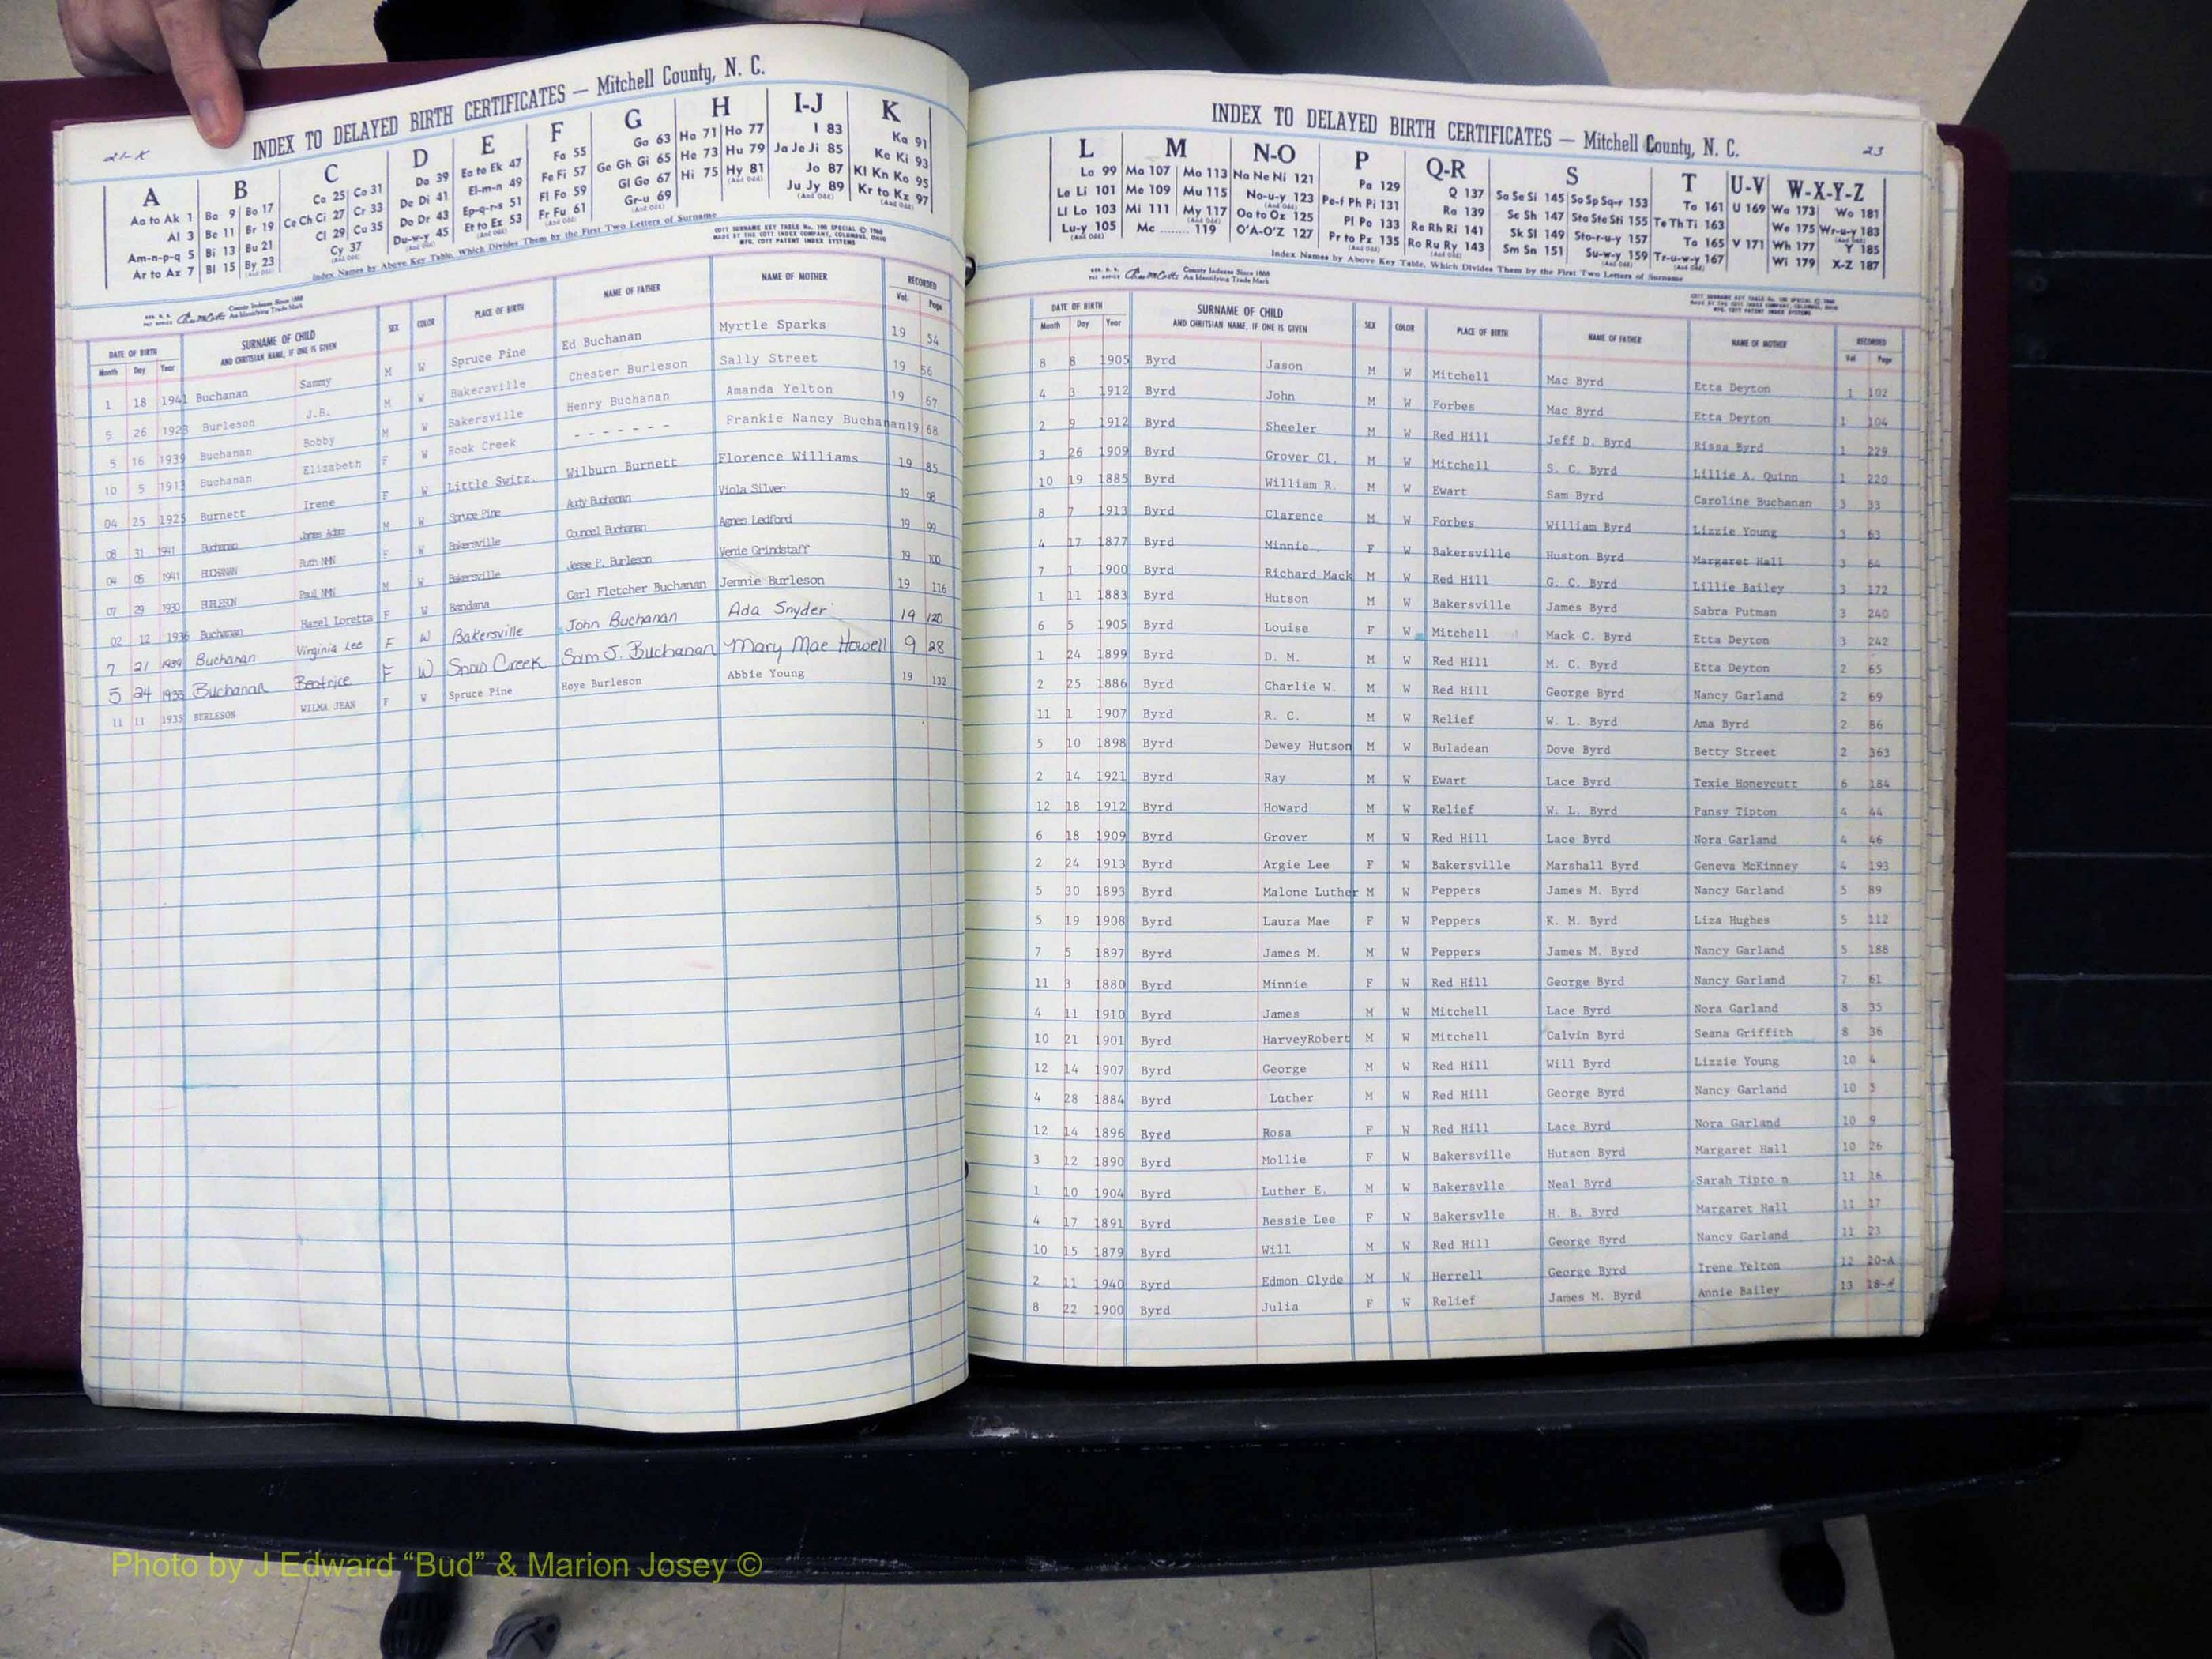 21-K
INDEX TO DELAYED BIRTH CERTIFICATES — Mitchell County, N. C.
A B C D E F G H I-J K
Aa to Ak 1 Ba 9 Bo 17 Ca 25 Co 31 Da 39 Ea to Ek 47 Fa 55 Ga 63 Ha 71 Ho 77 I 83 Ka 91
Al 3 Be 11 Br 19 Ce Ch Ci 27 Cr 33 De Di 41 El-m-n 49 Fe Fi 57 Ge Gh Gi 65 He 73 Hu 79 Ja Je Ji 85 Ke Ki 93
Am-n-p-q 5 Bi 13 Bu 21 Cl 29 Cu 35 Do Dr 43 Ep-q-r-s 51 Fl Fo 59 Gl Go 67 Hi 75 Hy 81 Jo 87 Kl Kn Ko 95
Ar to Az 7 Bl 15 By 23 Cy 37 Du-w-y 45 Et to Ez 53 Fr Fu 61 Gr-u 69 Ju Jy 89 Kr to Kz 97
Index Names by Above Key Table, Which Divides Them by the First Two Letters of Surname
COTT SURNAME KEY TABLE No. 100 SPECIAL © 1960
MADE BY THE COTT INDEX COMPANY, COLUMBUS, OHIO
MFG. COTT PATENT INDEX SYSTEMS
County Indexes Since 1888
An Identifying Trade Mark
DATE OF BIRTH SURNAME OF CHILD SEX COLOR PLACE OF BIRTH NAME OF FATHER NAME OF MOTHER RECORDED
Month Day Year AND CHRITSIAN NAME, IF ONE IS GIVEN Vol. Page
1 18 1941 Buchanan Sammy M W Spruce Pine Ed Buchanan Myrtle Sparks 19 54
5 26 1923 Burleson J.B. M W Bakersville Chester Burleson Sally Street 19 56
5 16 1939 Buchanan Bobby M W Bakersville Henry Buchanan Amanda Yelton 19 67
10 5 1913 Buchanan Elizabeth F W Rock Creek - - - - - - - Frankie Nancy Buchanan 19 68
04 25 1925 Burnett Irene F W Little Switz. Wilburn Burnett Florence Williams 19 85
08 31 1941 Buchanan James Adam M W Spruce Pine Audy Buchanan Viola Silver 19 98
04 05 1941 BUCHANAN Ruth NMN F W Bakersville Councel Buchanan Agnes Ledford 19 99
07 29 1930 BURLESON Paul NMN M W Bakersville Jesse P. Burleson Vernie Grindstaff 19 100
02 12 1936 Buchanan Hazel Loretta F W Bandana Carl Fletcher Buchanan Jennie Burleson 19 116
7 21 1939 Buchanan Virginia Lee F W Bakersville John Buchanan Ada Snyder 19 120
5 24 1933 Buchanan Beatrice F W Snow Creek Sam J. Buchanan Mary Mae Howell 9 28
11 11 1935 BURLESON WILMA JEAN F W Spruce Pine Hoye Burleson Abbie Young 19 132
INDEX TO DELAYED BIRTH CERTIFICATES — Mitchell County, N. C. 23
L M N-O P Q-R S T U-V W-X-Y-Z
La 99 Ma 107 Mo 113 Na Ne Ni 121 Pa 129 Q 137 Sa Se Si 145 So Sp Sq-r 153 Ta 161 U 169 Wa 173 Wo 181
Le Li 101 Me 109 Mu 115 No-u-y 123 Pe-f Ph Pi 131 Ra 139 Sc Sh 147 Sta Ste Sti 155 Te Th Ti 163 We 175 Wr-u-y 183
Ll Lo 103 Mi 111 My 117 Oa to Oz 125 Pl Po 133 Re Rh Ri 141 Sk Sl 149 Sto-r-u-y 157 To 165 V 171 Wh 177 Y 185
Lu-y 105 Mc 119 O'A-O'Z 127 Pr to Pz 135 Ro Ru Ry 143 Sm Sn 151 Su-w-y 159 Tr-u-w-y 167 Wi 179 X-Z 187
Index Names by Above Key Table, Which Divides Them by the First Two Letters of Surname
County Indexes Since 1888
An Identifying Trade Mark
COTT SURNAME KEY TABLE No. 100 SPECIAL © 1960
MADE BY THE COTT INDEX COMPANY, COLUMBUS, OHIO
MFG. COTT PATENT INDEX SYSTEMS
DATE OF BIRTH SURNAME OF CHILD SEX COLOR PLACE OF BIRTH NAME OF FATHER NAME OF MOTHER RECORDED
Month Day Year AND CHRITSIAN NAME, IF ONE IS GIVEN Vol Page
8 8 1905 Byrd Jason M W Mitchell Mac Byrd Etta Deyton 1 102
4 3 1912 Byrd John M W Forbes Mac Byrd Etta Deyton 1 104
2 9 1912 Byrd Sheeler M W Red Hill Jeff D. Byrd Rissa Byrd 1 229
3 26 1909 Byrd Grover Cl. M W Mitchell S. C. Byrd Lillie A. Quinn 1 220
10 19 1885 Byrd William R. M W Ewart Sam Byrd Caroline Buchanan 3 33
8 7 1913 Byrd Clarence M W Forbes William Byrd Lizzie Young 3 63
4 17 1877 Byrd Minnie F W Bakersville Huston Byrd Margaret Hall 3 64
7 1 1900 Byrd Richard Mack M W Red Hill G. C. Byrd Lillie Bailey 3 172
1 11 1883 Byrd Hutson M W Bakersville James Byrd Sabra Putman 3 240
6 5 1905 Byrd Louise F W Mitchell Mack C. Byrd Etta Deyton 3 242
1 24 1899 Byrd D. M. M W Red Hill M. C. Byrd Etta Deyton 2 65
2 25 1886 Byrd Charlie W. M W Red Hill George Byrd Nancy Garland 2 69
11 1 1907 Byrd R. C. M W Relief W. L. Byrd Ama Byrd 2 86
5 10 1898 Byrd Dewey Hutson M W Buladean Dove Byrd Betty Street 2 363
2 14 1921 Byrd Ray M W Ewart Lace Byrd Texie Honeycutt 6 184
12 18 1912 Byrd Howard M W Relief W. L. Byrd Pansy Tipton 4 44
6 18 1909 Byrd Grover M W Red Hill Lace Byrd Nora Garland 4 46
2 24 1913 Byrd Argie Lee F W Bakersville Marshall Byrd Geneva McKinney 4 193
5 30 1893 Byrd Malone Luther M W Peppers James M. Byrd Nancy Garland 5 89
5 19 1908 Byrd Laura Mae F W Peppers K. M. Byrd Liza Hughes 5 112
7 5 1897 Byrd James M. M W Peppers James M. Byrd Nancy Garland 5 188
11 3 1880 Byrd Minnie F W Red Hill George Byrd Nancy Garland 7 61
4 11 1910 Byrd James M W Mitchell Lace Byrd Nora Garland 8 35
10 21 1901 Byrd HarveyRobert M W Mitchell Calvin Byrd Seana Griffith 8 36
12 14 1907 Byrd George M W Red Hill Will Byrd Lizzie Young 10 4
4 28 1884 Byrd Luther M W Red Hill George Byrd Nancy Garland 10 5
12 14 1896 Byrd Rosa F W Red Hill Lace Byrd Nora Garland 10 9
3 12 1890 Byrd Mollie F W Bakersville Hutson Byrd Margaret Hall 10 26
1 10 1904 Byrd Luther E. M W Bakersvlle Neal Byrd Sarah Tipto n 11 16
4 17 1891 Byrd Bessie Lee F W Bakersvlle H. B. Byrd Margaret Hall 11 17
10 15 1879 Byrd Will M W Red Hill George Byrd Nancy Garland 11 23
2 11 1940 Byrd Edmon Clyde M W Herrell George Byrd Irene Yelton 12 20-A
8 22 1900 Byrd Julia F W Relief James M. Byrd Annie Bailey 13 18-
Photo by J Edward “Bud” & Marion Josey ©